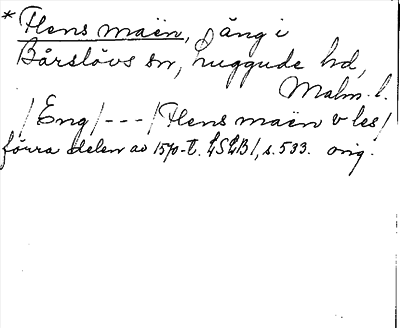 * Flens maën, äng i
Bårslövs sn, Luggude hd,
Malm. l.
/Eng/ --- /Flens maën v les/
förra delen av 1570-t. LSLB/, s. 533. orig.